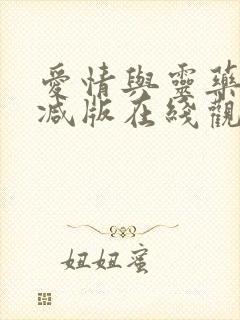 愛情與靈藥
減版在綫觀
妞妞蜜